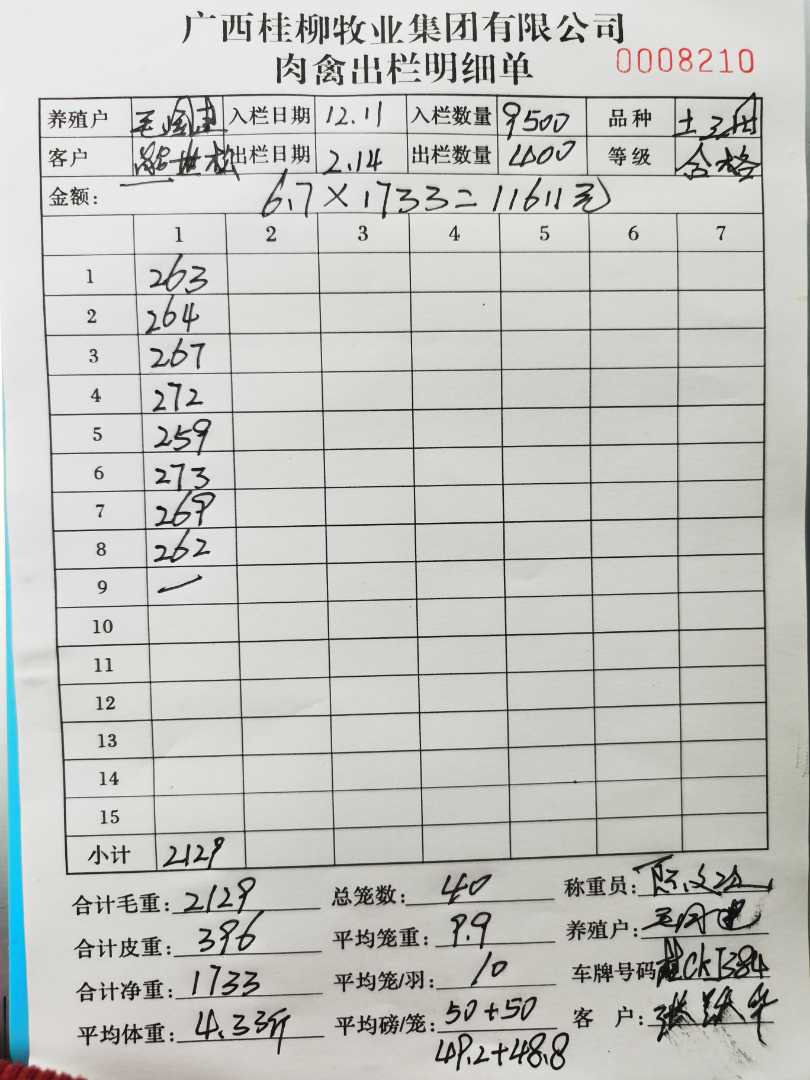 广西桂柳牧业集团有限公司
肉禽出栏明细单 0008210
养殖户 入栏日期 12.11 入栏数量 9500 品种 土
客户 出栏日期 2.14 出栏数量 400 等级 合格
金额: 6.7×1733=11611元
1 2 3 4 5 6 7
1 263
2 264
3 267
4 272
5 259
6 273
7 269
8 262
9 一
10
11
12
13
14
15
小计 2129
合计毛重: 2129 总笼数: 40 称重员:
合计皮重: 396 平均笼重: 9.9 养殖户:
合计净重: 1733 平均笼/羽: 10 车牌号码 桂CKJ384
平均体重: 4.33斤 平均磅/笼: 50+50 客 户:
49.2+48.8